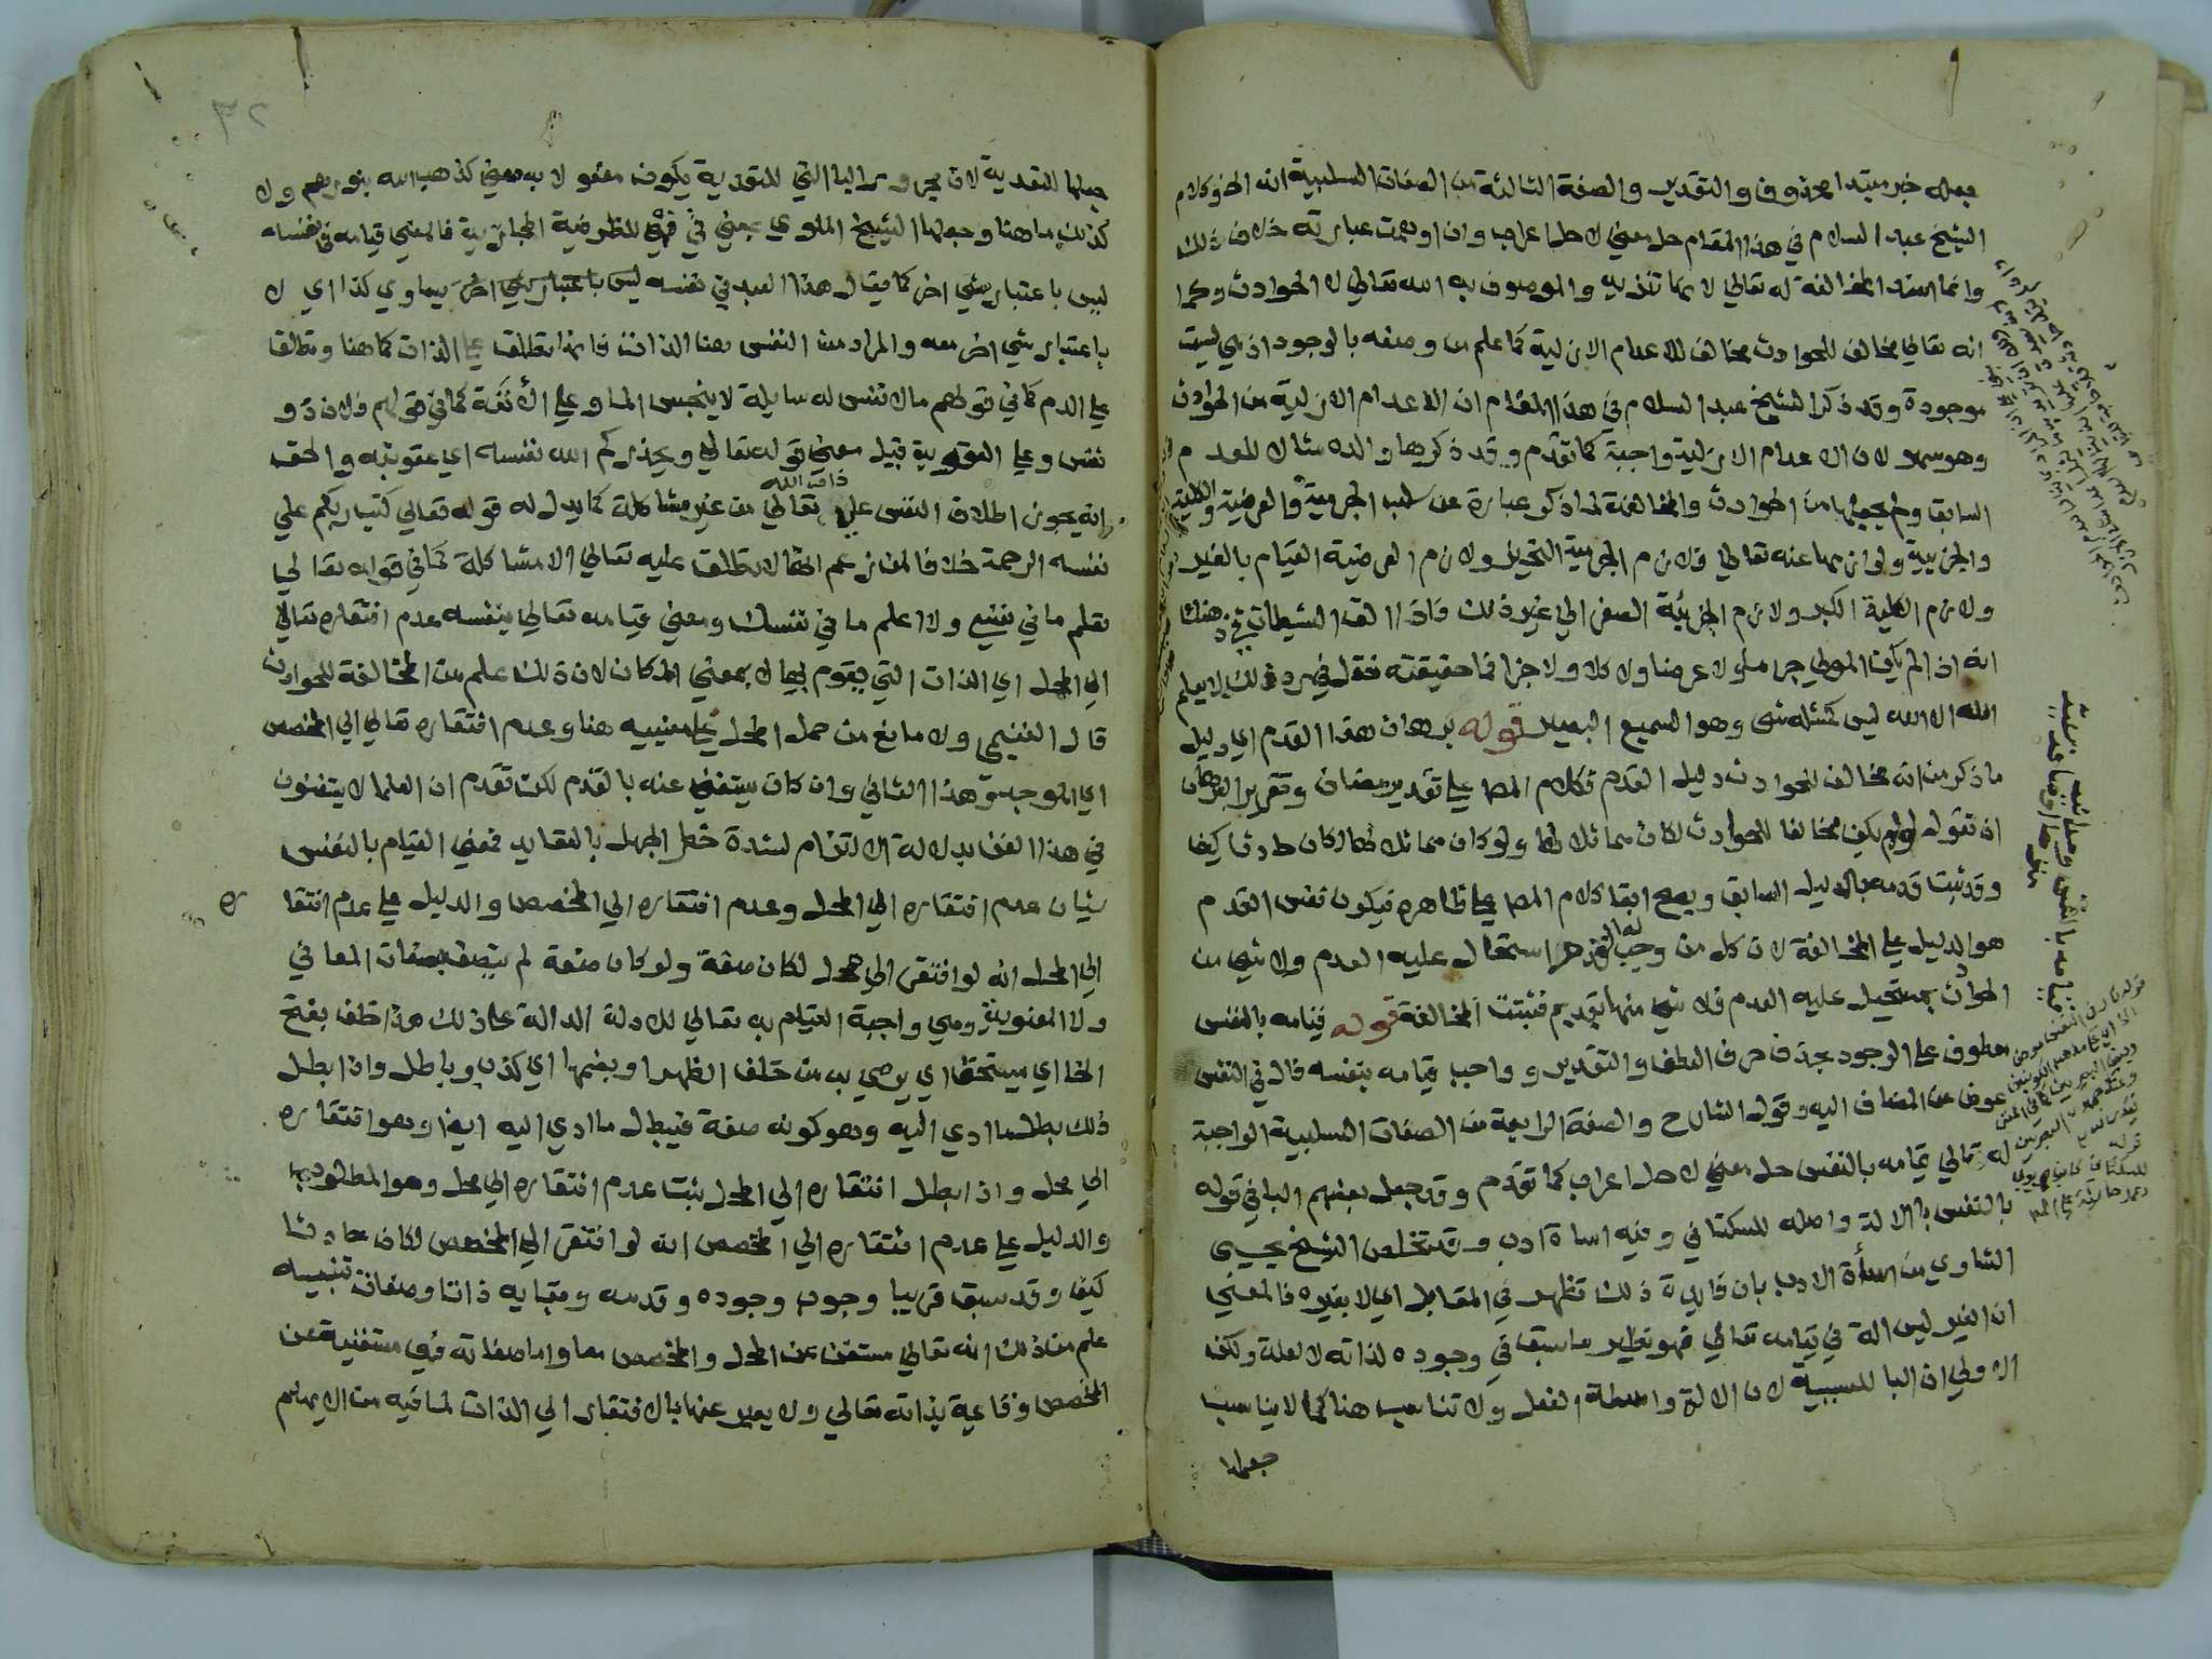 جعله خبر مبتدا محذوف والتقدير والصفة الثالثة من الصفات السلبية انه الخ وكلام
الشيخ عبد السلام في هذا المقام حل معني لا حل اعراب وان اوهمت عبارته خلاف ذلك
وانما اسند المخالفة له تعالي لا تنزيه والموصوف به الله تعالي لا الحوادث وكما
انه تعالي مخالف للحوادث مخالف للاعدام الازلية كما علم من وصفه بالوجود اذ هي ليست
موجودة وقد ذكر الشيخ عبد السلام في هذا المقام ان الاعدام الازلية من الحوادث
وهو سهو لان الاعدام الازلية واجبة كما تقدم وقد ذكرها والده مثالا للعدم
السابق ولم يجعلها من الحوادث والمخالفة لما ذكر عبارة عن سلب الجرمية والعرضية والكلية
والجزيية ولوازمها عنه تعالي فلازم الجرمية التحيز ولازم العرضية القيام بالغير
ولازم الكلية الكبر ولازم الجزئية الصغر الي غير ذلك فاذا القي الشيطان في ذهنك
انه اذا لم يكن المولي جرما ولا عرضا ولا كلا ولا جزا فما حقيقته فقل في رد ذلك لا يعلم
الله الا الله ليس كمثله شي وهو السميع البصير قوله برهان هذا القدم اي دليل
ما ذكر من انه مخالف للحوادث دليل القدم فكلام المص علي تقدير مضاف وتقرير البرهان
ان تقول لو لم يكن مخالفا للحوادث لكان مماثلا لها ولو كان مماثلا لها لكان حادثا كيف
وقد ثبت قدمه بالدليل السابق ويصح ابقا كلام المص علي ظاهره فيكون نفس القدم
هو الدليل علي المخالفة لان كل من وجب له القدم استحال عليه العدم ولا شي من
الحوادث يستحيل عليه العدم فلا شي منها بقديم فثبتت المخالفة قوله قيامه بالنفس
معطوف علي الوجود بحذف حرف العطف والتقدير وواجب قيامه بنفسه فال في النفس
عوض عن المضاف اليه وقول الشارح والصفة الرابعة من الصفات السلبية الواجبة
له تعالي قيامه بالنفس حل معني لا حل اعراب كما تقدم وقد جعل بعضهم البا في قوله
بالنفس باالالة واصله للسكتاني وفيه اساة ادب وقد تخلص الشيخ يحيي
الشاوي من اساأة الادب بان فايدة ذلك تظهر في المقابل اي لا بغيره فالمعني
ان الغير ليس الة في قيامه تعالي فهو نظير ما سبق في وجوده لذاته لا لعلة ولكن
الاولي ان البا للسببية لان الالة واسطة الفعل ولا تناسب هنا كما لا يناسب
جعلها
قيامه بالنفس وحدانيه
منزها اوصافه سنيه
٣٢
جعلها للتعدية لان مجرور البا التي للتعدية يكون مفعولا به معني كذهب الله بنورهم ولا
كذلك ما هنا وجعلها الشيخ الملوي بمعني في فهي للظرفية المجازية فالمعني قيامه في نفسه
ليس باعتبار شي اخر كما يقال هذا العبد في نفسه ليس باعتبار شي اخر يساوي كذا اي لا
باعتبار شي اخر معه والمراد من النفس هنا الذات فانها تطلق علي الذات كما هنا وتطلق
علي الدم كما في قولهم مالا نفس له سايلة لا ينجس الما وعلي الأنفة كما في قولهم فلان ذو
نفس وعلي العقوبة قيل معني قوله تعالي ويحذركم الله نفسه اي عقوبته والحق
انه يجوز اطلاق النفس علي ذات الله تعالي من غير مشاكلة كما يدل له قوله تعالي كتب ربكم علي
نفسه الرحمة خلافا لمن زعم انها لا تطلق عليه تعالي الا مشاكلة كما في قوله تعالي
تعلم ما في نفسي ولا اعلم ما في نفسك ومعني قيامه تعالي بنفسه عدم افتقاره تعالي
الي المحل اي الذات التي يقوم بها لا بمعني المكان لان ذلك علم من المخالفة للحوادث
قال الغنيمي ولا مانع من حمل المحل علي معنييه هنا وعدم افتقاره تعالي الي المخصص
اي الموجد وهذا الثاني وان كان يستغني عنه بالقدم لكن تقدم ان العلما لا يكتفون
في هذا الفن بدلالة الالتزام لشدة خطر الجهل بالعقايد فمعني القيام بالنفس
شيان عدم افتقاره الي المحل وعدم افتقاره الي المخصص والدليل علي عدم افتقا
ره
الي المحل انه لو افتقر الي محل لكان صفة ولو كان صفة لم يتصف بصفات المعاني
ولا المعنوية وهي واجبة القيام به تعالي للادلة الدالة علي ذلك هذا خلف بفتح
الخا اي يستحق ان يرمي به من خلف الظهر او بضمها اي كذب وباطل واذا بطل
ذلك بطل ما ادي اليه وهو كونه صفة فيبطل ما ادي اليه ايضا وهو افتقاره
الي محل واذا بطل افتقاره الي المحل ثبت عدم افتقاره الي محل وهو المطلوب
والدليل علي عدم افتقاره الي المخصص انه لو افتقر الي المخصص لكان حادثا
كيف وقد سبق قريبا وجوب وجوده وقدمه وبقايه ذاتا وصفات تنبيه
علم من ذلك انه تعالي مستغن عن المحل والمخصص معا واما صفاته فهي مستغنية عن
المخصص وقايمة بذاته تعالي ولا يعبر عنها بالافتقار الي الذات لما فيه من الايهام